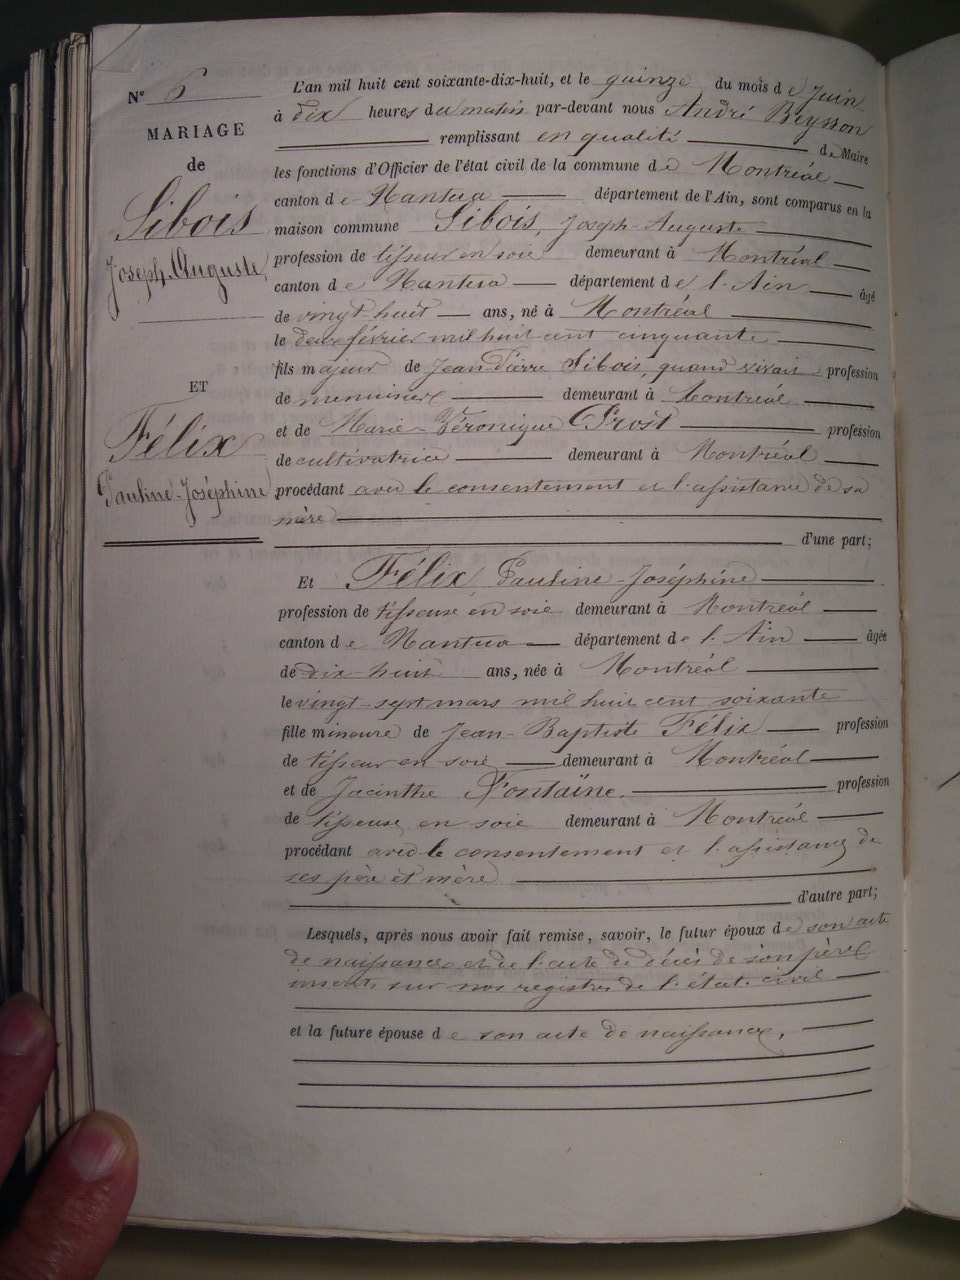 N° 6
MARIAGE
de
Sibois
Joseph-Auguste
ET
Félix
Pauline-Joséphine
L'an mil huit cent soixante-dix-huit, et le quinze du mois de Juin
à dix heures du matin par-devant nous André Beysson
remplissant en qualité de Maire
les fonctions d'Officier de l'état civil de la commune de Montréal
canton de Nantua département de l'Ain, sont comparus en la
maison commune Sibois, Joseph-Auguste
profession de tisseur en soie demeurant à Montréal
canton de Nantua département de l'Ain âgé
de vingt-huit ans, né à Montréal
le deux février mil huit cent cinquante
fils majeur de Jean-Pierre Sibois, quand vivait profession
de menuisier demeurant à Montréal
et de Marie-Véronique Prost profession
de cultivatrice demeurant à Montréal
procédant avec le consentement et l'assistance de sa
mère
d'une part;
Et Félix, Pauline-Joséphine
profession de tisseuse en soie demeurant à Montréal
canton de Nantua département de l'Ain âgée
de dix-huit ans, née à Montréal
le vingt-sept mars mil huit cent soixante
fille mineure de Jean-Baptiste Félix profession
de tisseur en soie demeurant à Montréal
et de Jacinthe Fontaine profession
de tisseuse en soie demeurant à Montréal
procédant avec le consentement et l'assistance de
ses père et mère
d'autre part;
Lesquels, après nous avoir fait remise, savoir, le futur époux de son acte
de naissance et de l'acte de décès de son père
inscrits sur nos registres de l'état civil
et la future épouse de son acte de naissance,